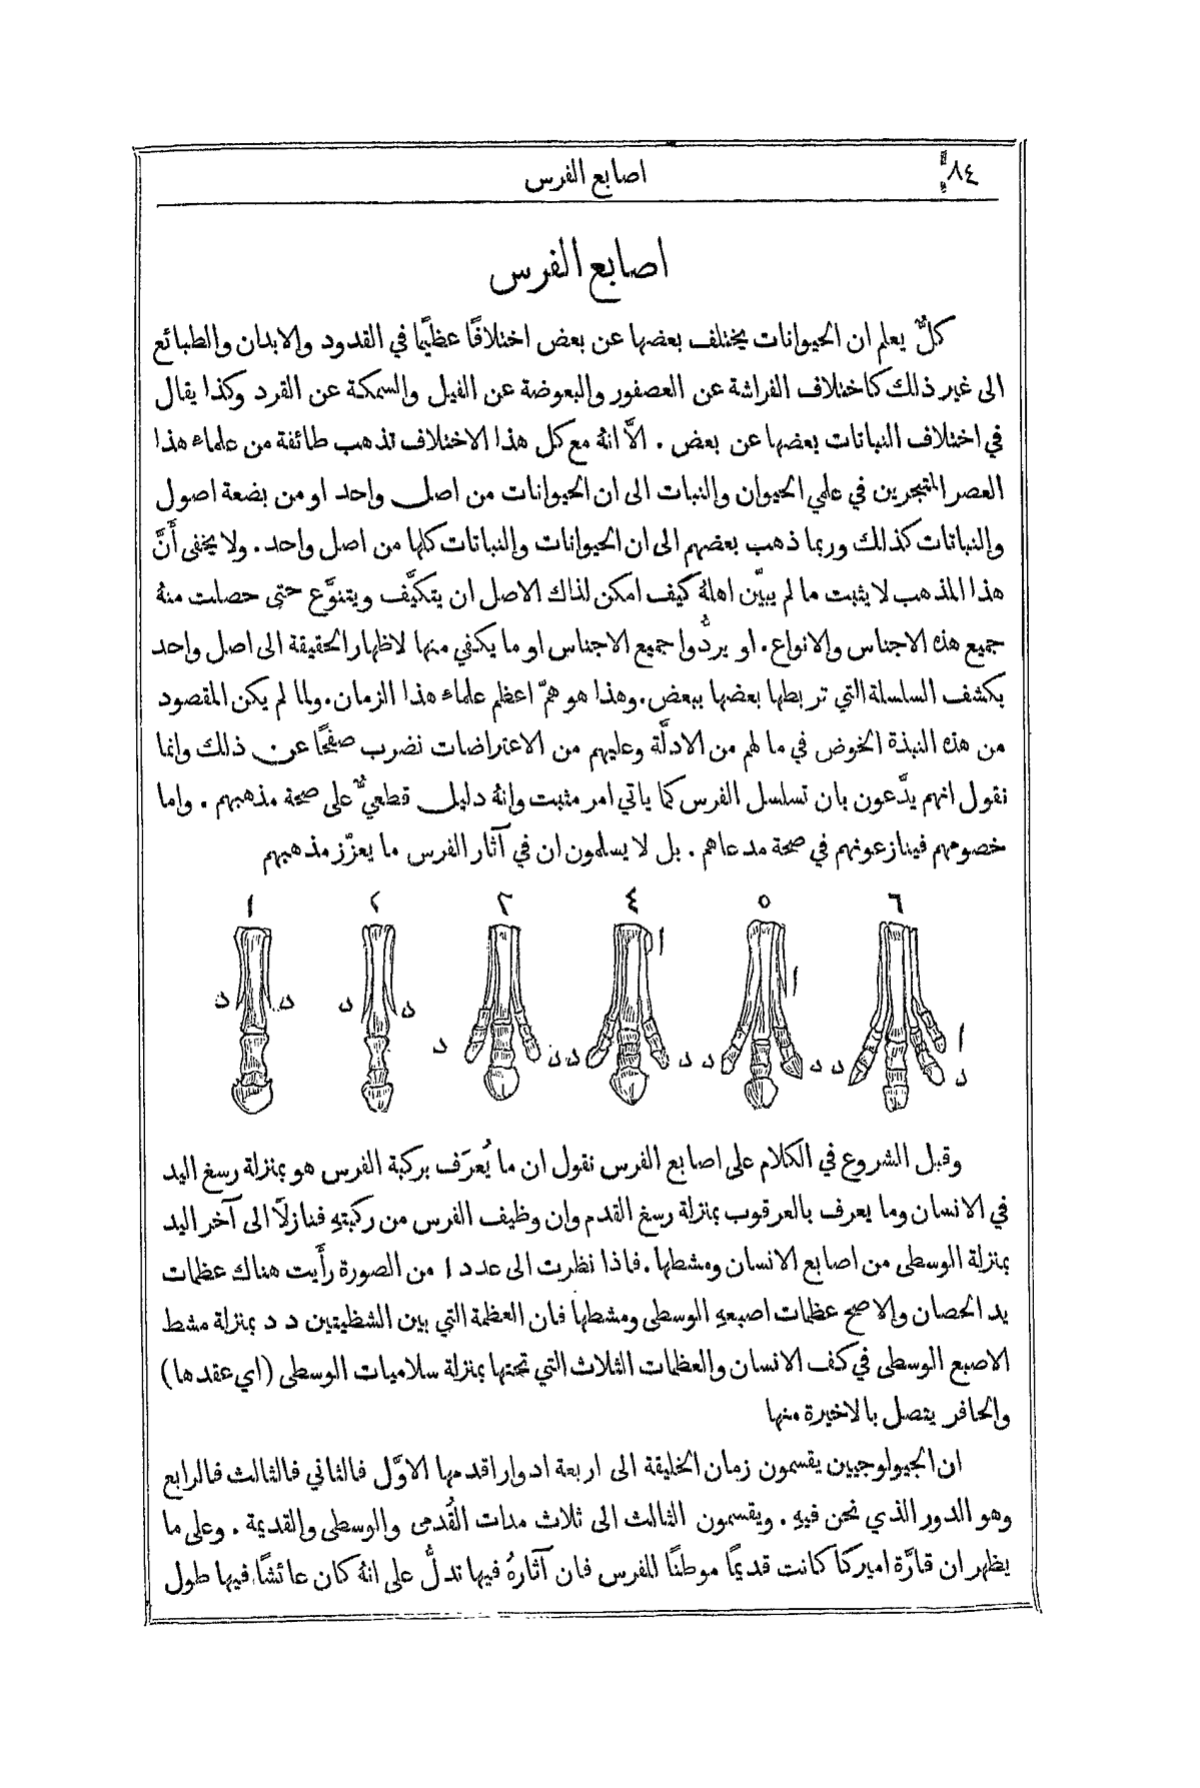 ٨٤ اصابع الفرس
اصابع الفرس
كلٌّ يعلم ان الحيوانات يختلف بعضها عن بعض اختلافًا عظيمًا في القدود والابدان والطبائع
الى غير ذلك كاختلاف الفراشة عن العصفور والبعوضة عن الفيل والسمكة عن القرد وكذا يقال
في اختلاف النباتات بعضها عن بعض . الاَّ انهُ مع كل هذا الاختلاف تذهب طائفة من علماء هذا
العصر المتبحرين في علمي الحيوان والنبات الى ان الحيوانات من اصل واحد او من بضعة اصول
والنباتات كذلك وربما ذهب بعضهم الى ان الحيوانات والنباتات كلها من اصل واحد . ولا يخفى أنَّ
هذا المذهب لا يثبت ما لم يبيّن اهلهُ كيف امكن لذاك الاصل ان يتكيَّف ويتنوَّع حتى حصلت منهُ
جميع هذه الاجناس والانواع . او يردُّوا جميع الاجناس او ما يكفي منها لاظهار الحقيقة الى اصل واحد
بكشف السلسلة التي تربطها بعضها ببعض . وهذا هو همّ اعظم علماء هذا الزمان . ولما لم يكن المقصود
من هذه النبذة الخوض في ما لهم من الادلَّة وعليهم من الاعتراضات نضرب صفحًا عن ذلك وانما
نقول انهم يدَّعون بان تسلسل الفرس كما ياتي امر مثبت وانهُ دليل قطعيٌّ على صحة مذهبهم . واما
خصومهم فينازعونهم في صحة مدعاهم . بل لا يسلمون ان في آثار الفرس ما يعزّز مذهبهم
٦ ٥ ٤ ٣ ٢ ١
ا ا ا
د د د د د د د د د د د د
وقبل الشروع في الكلام على اصابع الفرس نقول ان ما يُعرَف بركبة الفرس هو بمنزلة رسغ اليد
في الانسان وما يعرف بالعرقوب بمنزلة رسغ القدم وان وظيف الفرس من ركبتهِ فنازلاً الى آخر اليد
بمنزلة الوسطى من اصابع الانسان ومشطها . فاذا نظرت الى عدد ١ من الصورة رأَيت هناك عظمات
يد الحصان والاصح عظمات اصبعهِ الوسطى ومشطها فان العظمة التي بين الشظيتين د د بمنزلة مشط
الاصبع الوسطى في كف الانسان والعظمات الثلاث التي تحتها بمنزلة سلاميات الوسطى (اي عقدها)
والحافر يتصل بالاخيرة منها
ان الجيولوجيين يقسمون زمان الخليقة الى اربعة ادوار اقدمها الاوَّل فالثاني فالثالث فالرابع
وهو الدور الذي نحن فيهِ . ويقسمون الثالث الى ثلاث مدات القُدمى والوسطى والقديمة . وعلى ما
يظهر ان قارَّة اميركا كانت قديمًا موطنًا للفرس فان آثارهُ فيها تدلُّ على انهُ كان عائشًا فيها طول